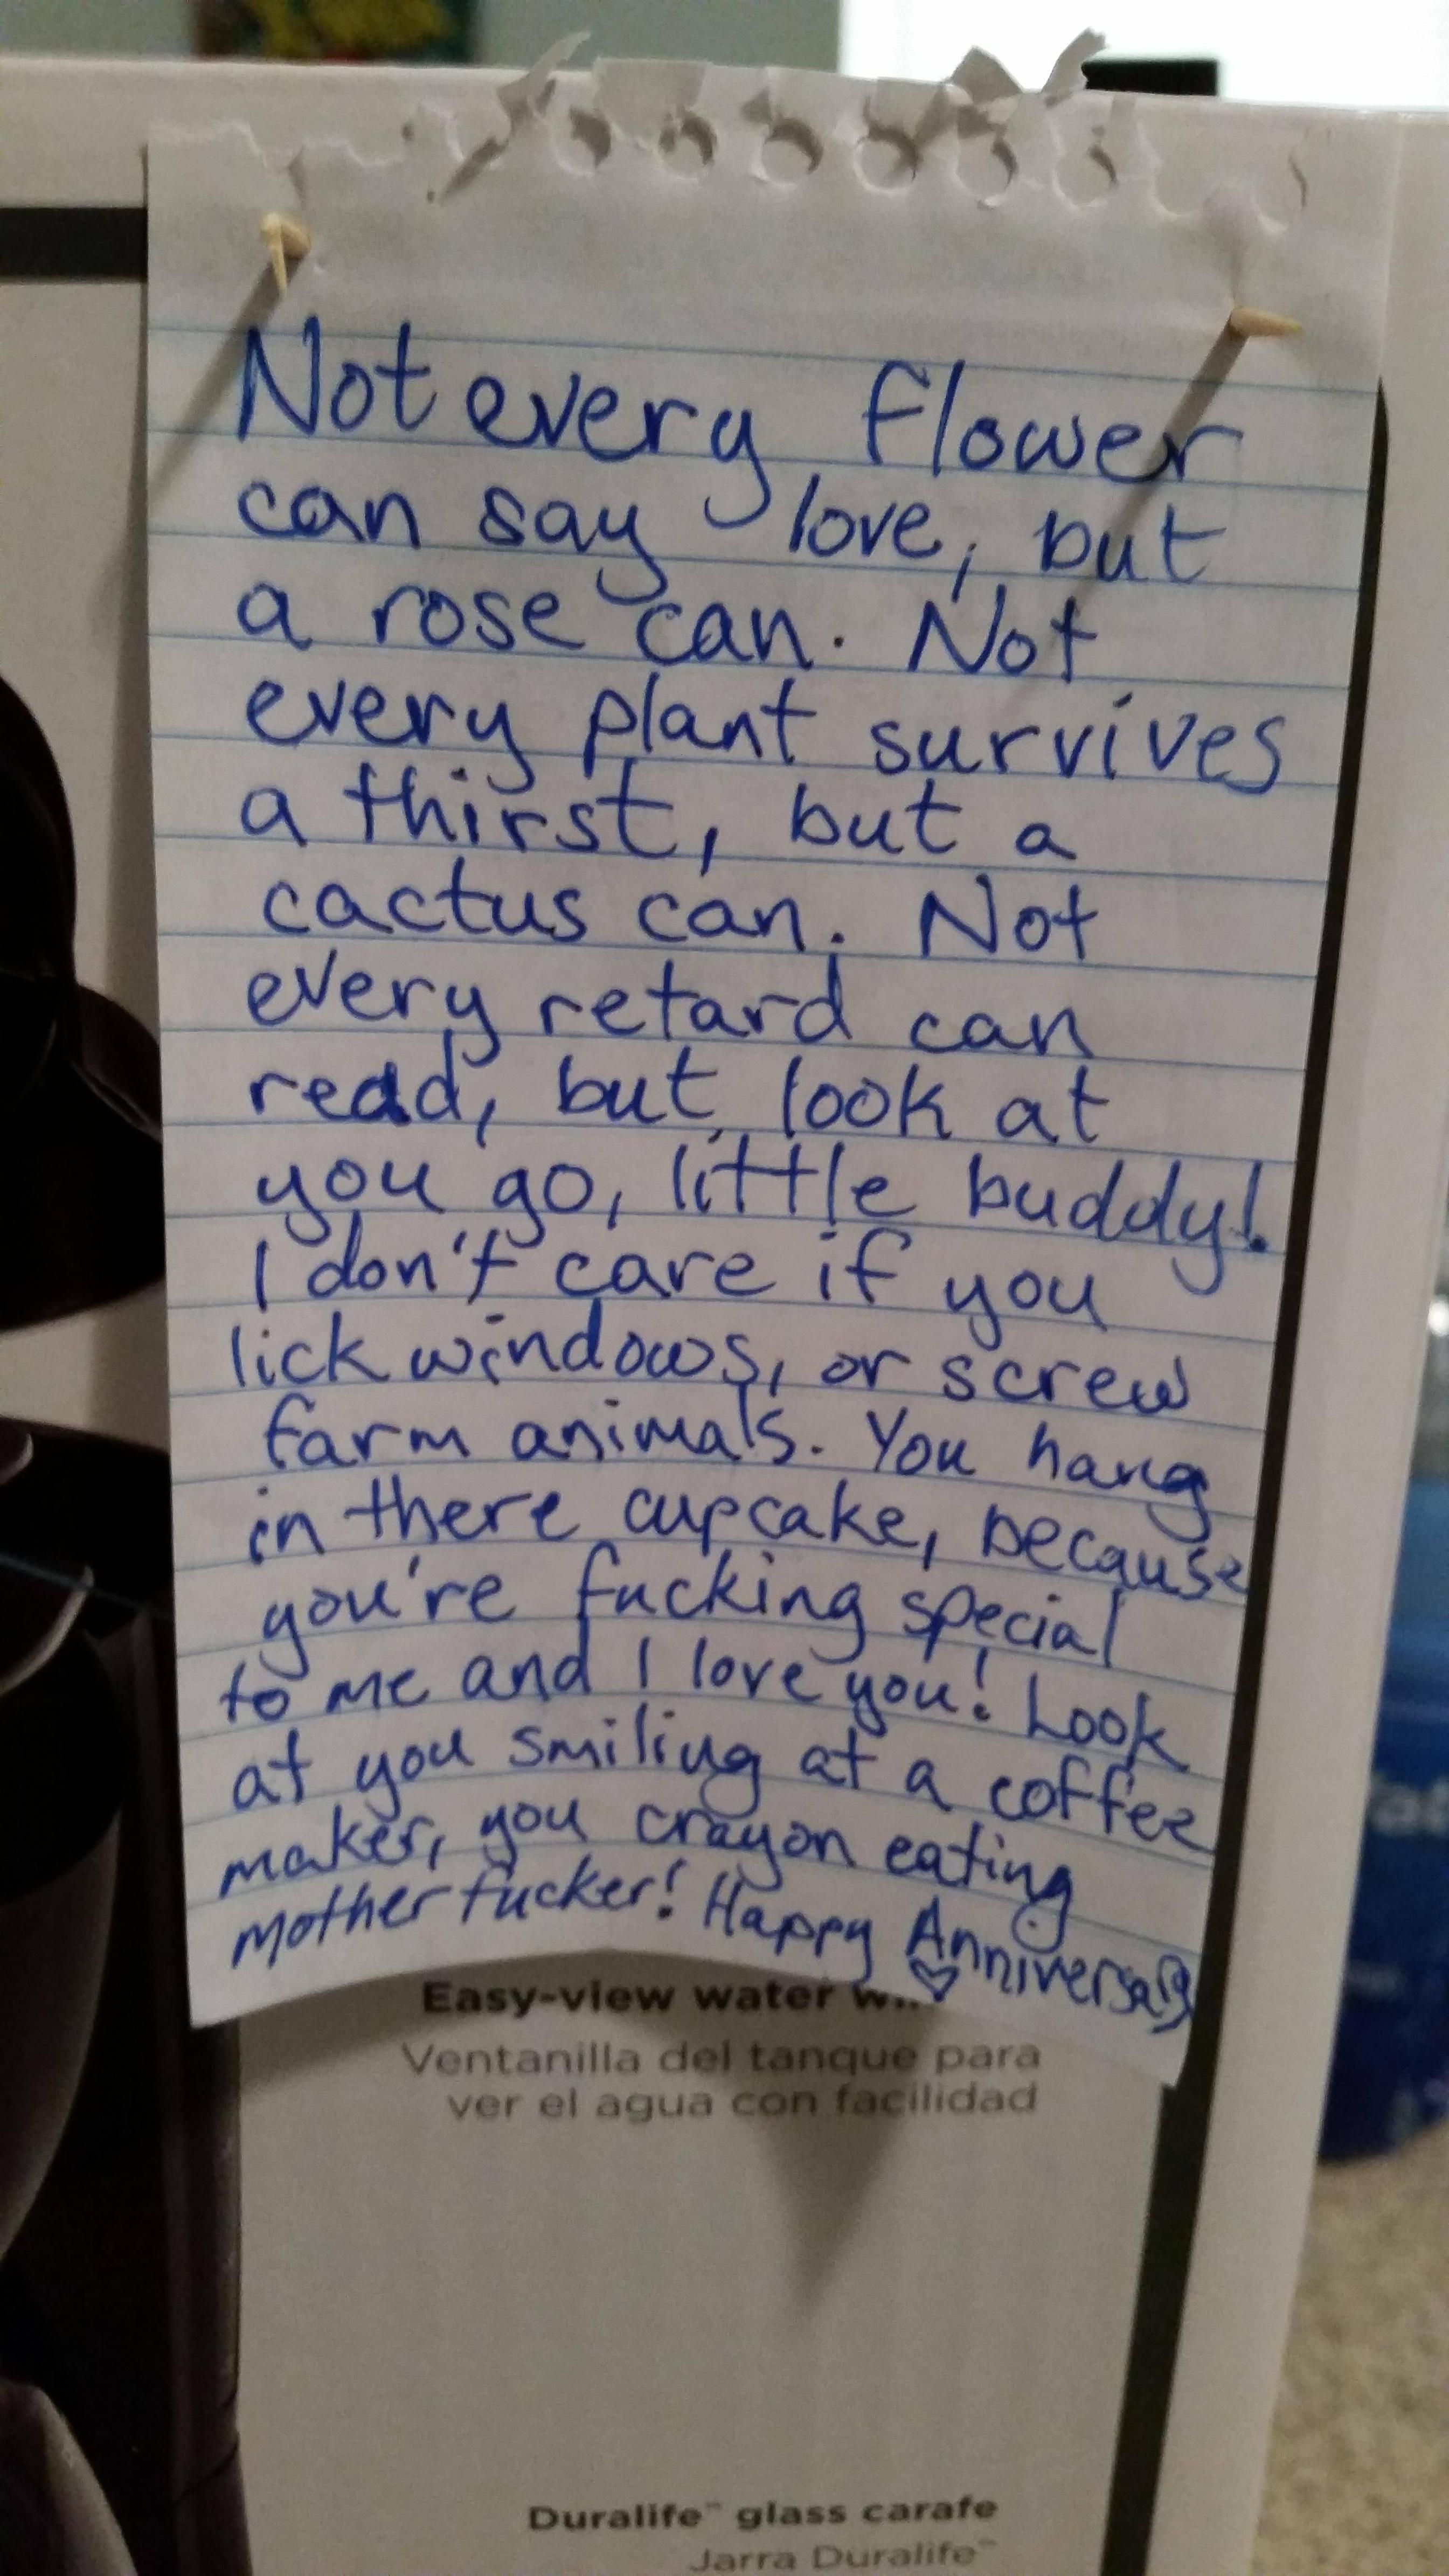 Not every flower
can say love, but
a rose can. Not
every plant survives
a thirst, but a
cactus can. Not
every retard can
read, but look at
you go, little buddy!
I don't care if you
lick windows, or screw
farm animals. You hang
in there cupcake, because
you're fucking special
to me and I love you! Look
at you smiling at a coffee
maker, you crayon eating
mother fucker! Happy Anniversary
Easy-view water
Ventanilla del tanque para
ver el agua con facilidad
Duralife™ glass carafe
Jarra Duralife™